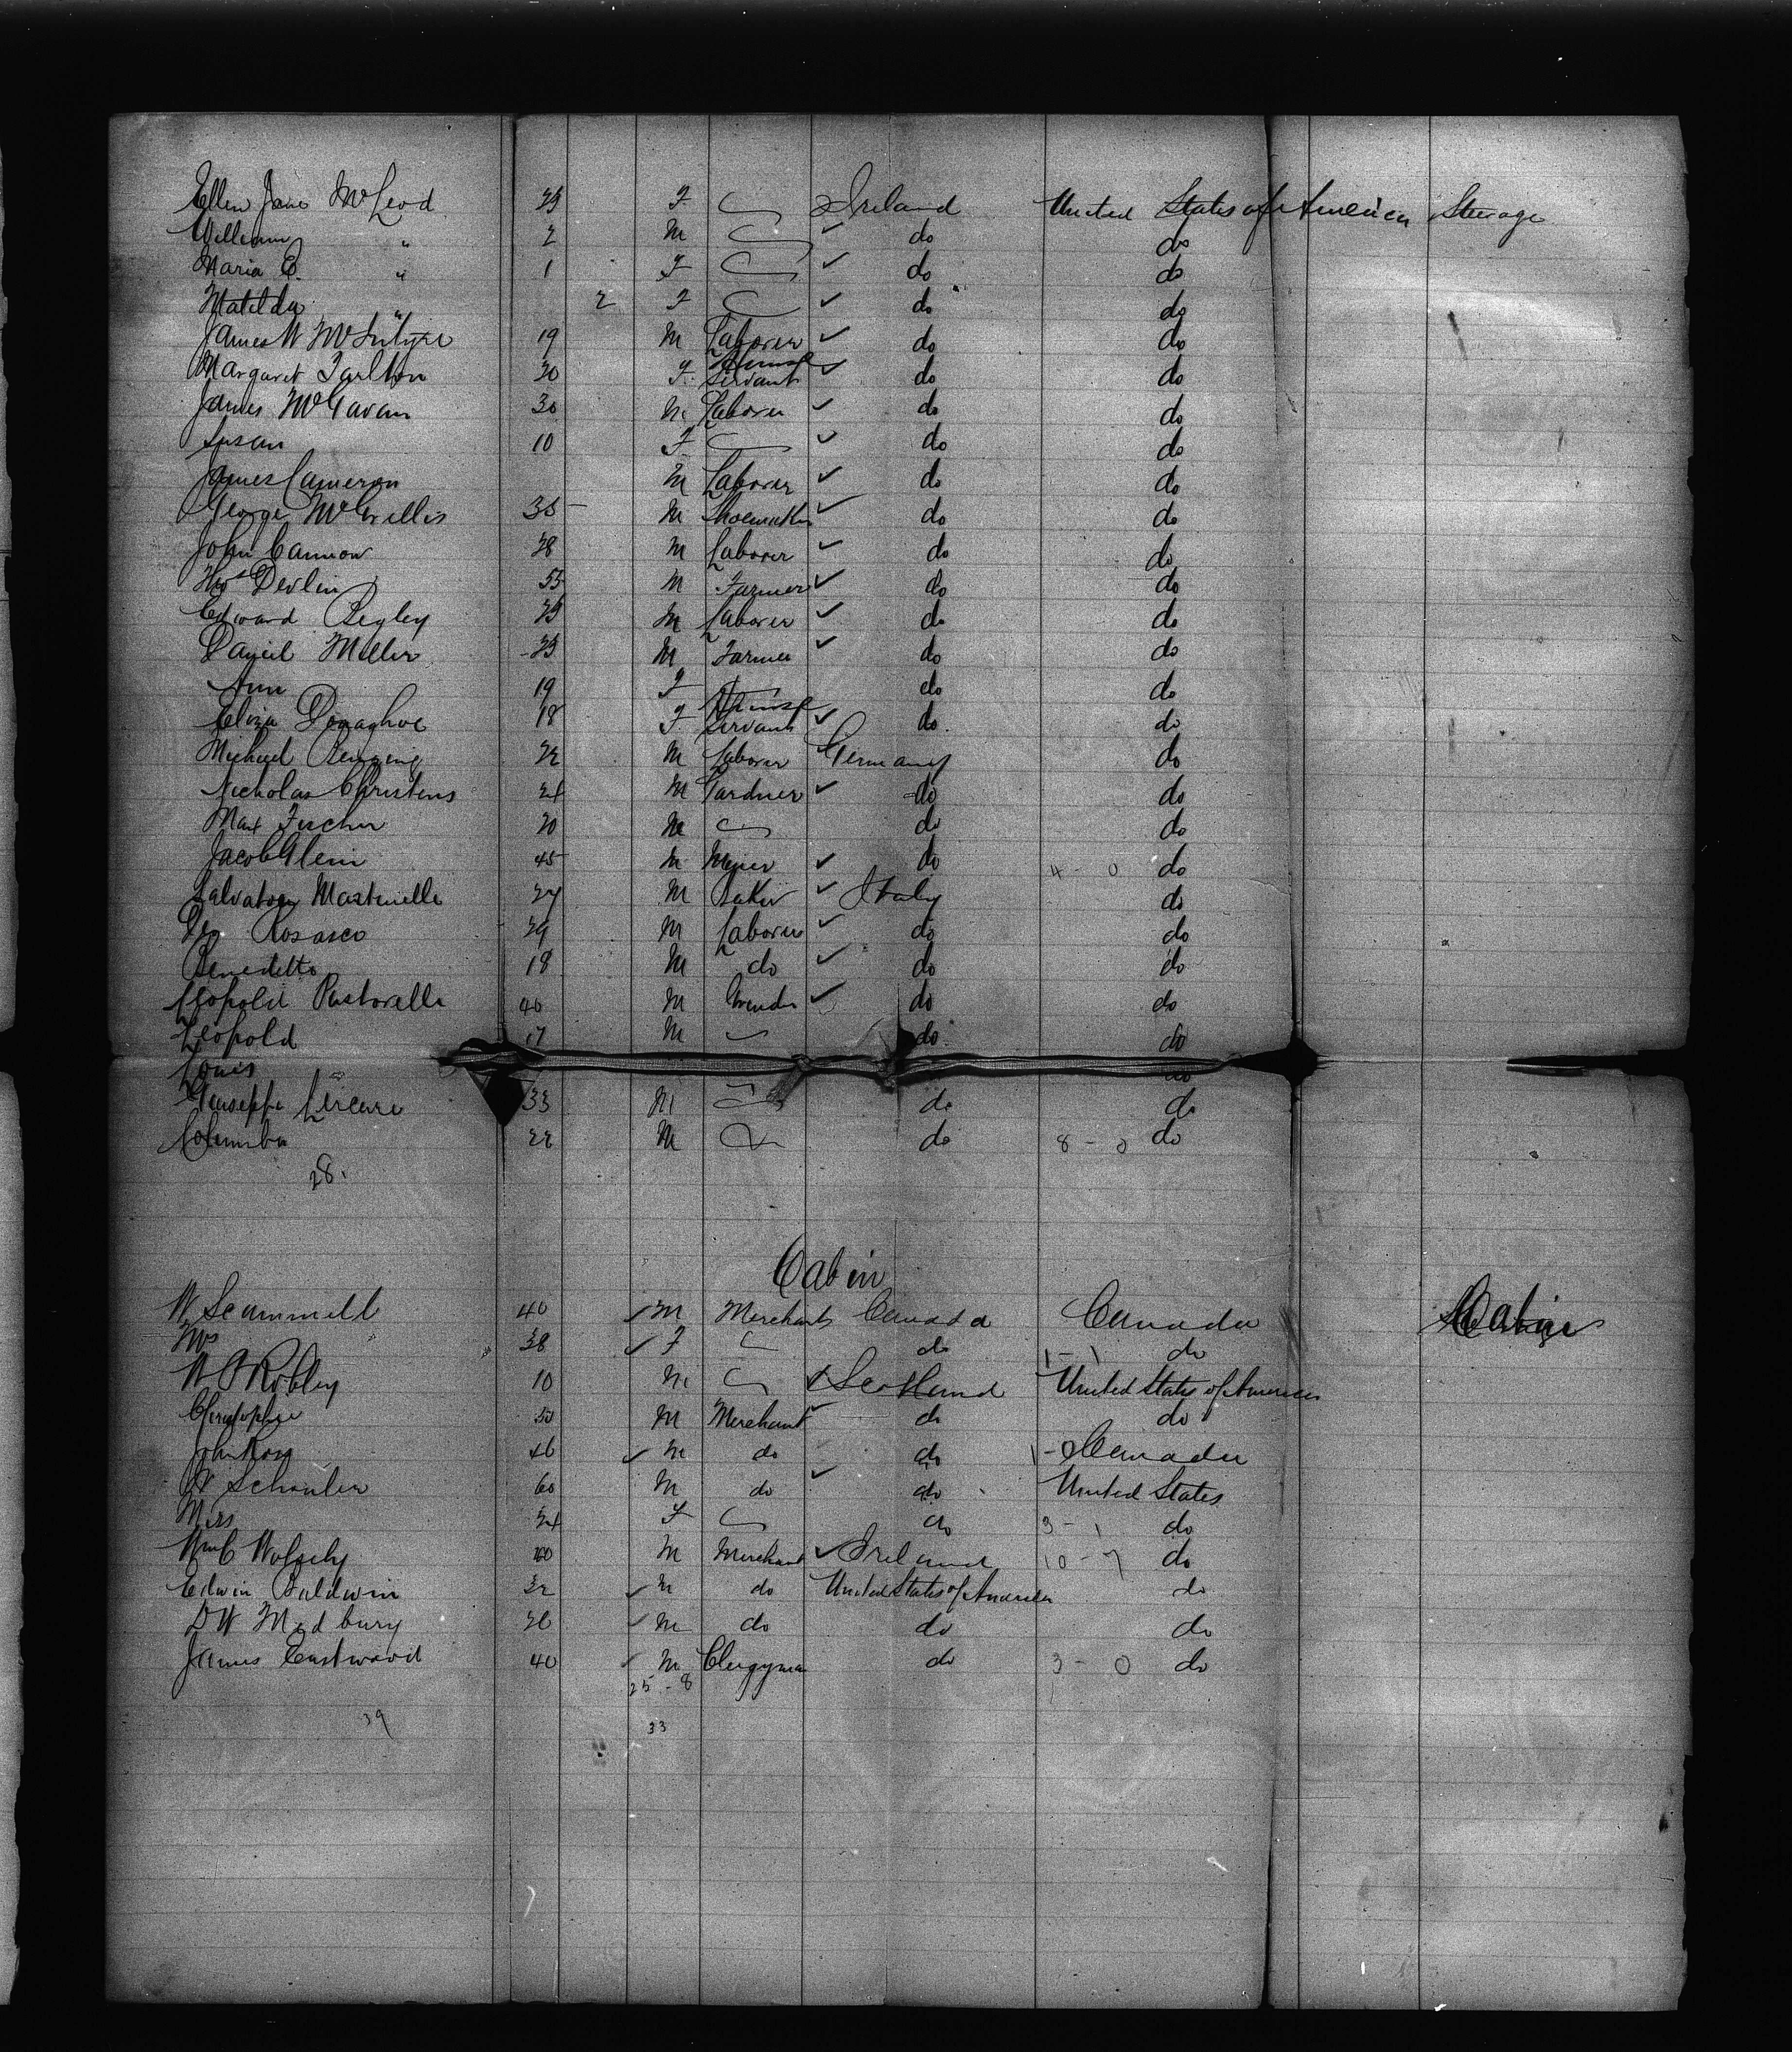 Ellen Jane McLeod 25 F Ireland United States of America Steerage
William " 2 M do do
Maria E. " 1 F do do
Matilda " 2 F do do
James W McIntyre 19 M Laborer do do
Margaret Tarlton 20 F Servant do do
James McGavan 30 M Laborer do do
Susan 10 F do do
James Cameron M Laborer do do
George McCrillis 35 M do do
John Cannon 28 M Laborer do do
Thos Devlin 55 M Farmer do do
Edward Begley 25 M Laborer do do
Daniel Miller 25 M Farmer do do
Ann 19 F do do
Eliza Donaghoe 18 F Servant do do
Michael 22 M Laborer Germany do
Nicholas Christens 24 M Gardner do do
Max Fischer 20 M do do
Jacob Glein 45 M do 4 - 0 do
Salvatore 27 M Baker Italy do
Rosasco 29 M Laborer do do
Benedetto 18 M do do do
Leopold Pastorelli 40 M do do
Leopold 17 M do do
Louis do
Giuseppe Lercari 33 M do do
Columba 22 M do 8 - 0 do
28.
Cabin
W. Scammell 40 M Merchants Canada Canada Cabin
Mrs 38 F do 1 - 1 do
W Robley 10 M Scotland United States of America
Christopher M Merchant do do
John Ross 46 M do do 1 - 0 Canada
W Schouler 60 M do do United States
Miss 24 F do 3 - 1 do
Wm C Wolsely 40 M Merchant Ireland 10 - 7 do
Edwin Baldwin 32 M do United States of America do
D W Medbury 26 M do do do
James Eastwood 40 M Clergyman do 3 - 0 do
25 - 8
39 33